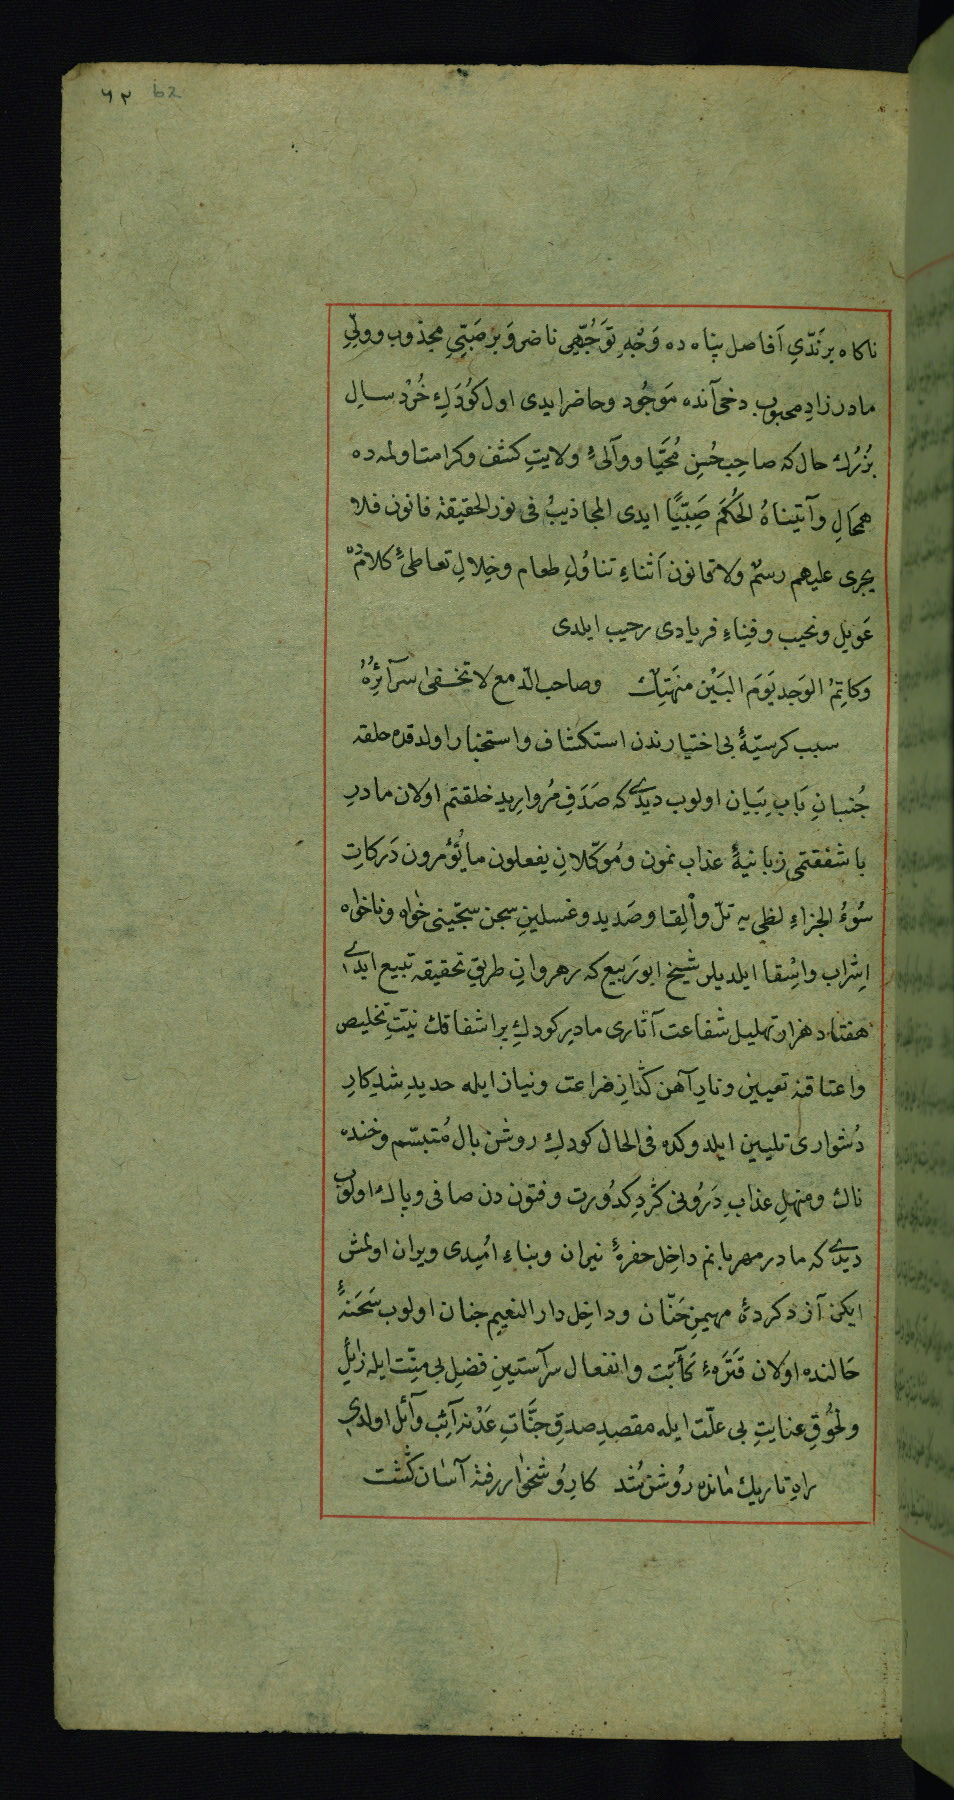 ٦٢ 62
ناكاه بر نَدّيِ اَفاضل پناه ده وَجْهِ تَوَجُّهِى ناضر و بر صَبّىِ مجذوب و ولّىِ
مادر زادِ محبوب دخى آنده مَوجُود و حاضر ايدى اول كُودَكِ خُرْد سال
بُزُرك حال كه صاحِب حُسنِ مُحَيّا و والىِٔ ولايتِ كشف و كرامتا ولمه ده
همحالِ وآتيناهُ الحُكْمَ صَبِيًّا ايدى المجاذيبُ فى نور الحقيقة فانون فلا
يجرى عليهم رسمٌ ولا قانون اَثناءِ تناوُلِ طعام و خِلالِ تعاطىِٔ كلام ده
عَويل و نحيب و فِناءِ فريادى رحيب ايلدى
وكاتِمُ الوَجد يَوَم البَيْن منهَتِكٌ وصاحب الدّمع لا تخفىٰ سرآئرُهُ
سبب كرسيّهٔ بى اختيارندن استكشاف و استخبار اولدقده حلقه
جُنبانِ بَابِ بَيان اولوب ديدى كه صَدَفِ مُرواريدِ خلقتم اولان مادرِ
با شفقتمى زبانيهٔ عذاب نمون و مُوكّلانِ يفعلون ما يُؤمرون دَركاتِ
سُوءُ الجزاءِ لظى يه تلّ و اْلِقا و صَديد و غسلينِ سجن سجّينى خواه و ناخواه
اِشراب و اسْقا ايلديلر شيخ ابو ربيع كه رهروانِ طريقِ تحقيقه تبيع ايدى
هفتاد هزار تهليل شفاعت آثارى مادرِ كودكِ پر اشفاقك نيّتِ تخليص
و اعتاقنه تعيين و نارِ آهن كُدازِ ضراعت و نياز ايله حديدِ شديدِ كارِ
دُشوارى تليين ايلدوكده فى الحال كودكِ روشن بال مُتبسّم و خنده
ناك و منهلِ عذابِ دَرُونى كَردِ كدُورت و فتون دن صافى و پاك اولوب
ديدى كه مادر مهربانم داخِل حفرهٔ نيران و بناءِ اُميدى ويران اولمش
ايكن آزاد كردهٔ مهيمنِ حَنّان و داخِل دار النعيمِ جنان اولوب سَحَنهٔ
حَالنده اولان قَتَرهٔ كَآبَت و انفعال سرآستينِ فضلِ بى منّت ايله زائل
و لحُوقِ عنايتِ بى علّت ايله مقصدِ صدقِ جنَّاتِ عَدْنه آئِب و آئل اولدى
راهِ تاريك مانده رُوشن شُد كارِ دُشخوار رفته آسان كَشت